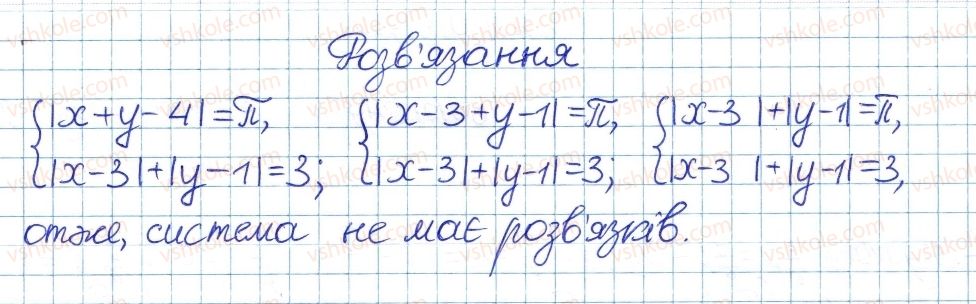 Розв'язання
{|x+y-4|=π, {|x-3+y-1|=π, {|x-3|+|y-1|=π,
|x-3|+|y-1|=3; |x-3|+|y-1|=3; |x-3|+|y-1|=3,
отже, система не має розв'язків.